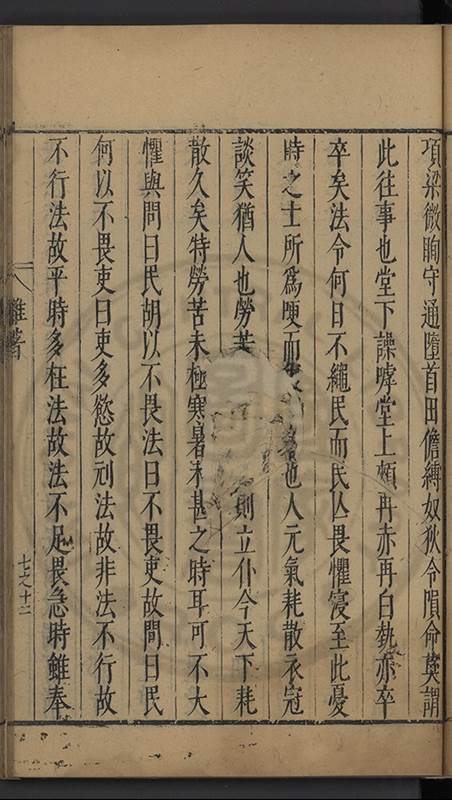 項梁微眴守通墮首田儋縛奴狄令隕命莫謂
此往事也堂下譟嘑堂上頰再赤再白執亦卒
卒矣法令何日不繩民而民亾畏懼寖至此憂
時之士所爲哽而也人元氣耗散衣冠
談笑猶人也勞苦則立仆今天下耗
散久矣特勞苦未極寒暑未甚之時耳可不大
懼與問曰民胡以不畏法曰不畏吏故問曰民
何以不畏吏曰吏多慾故刓法故非法不行故
不行法故平時多枉法故法不足畏急時雖奉
雜著
七之十二